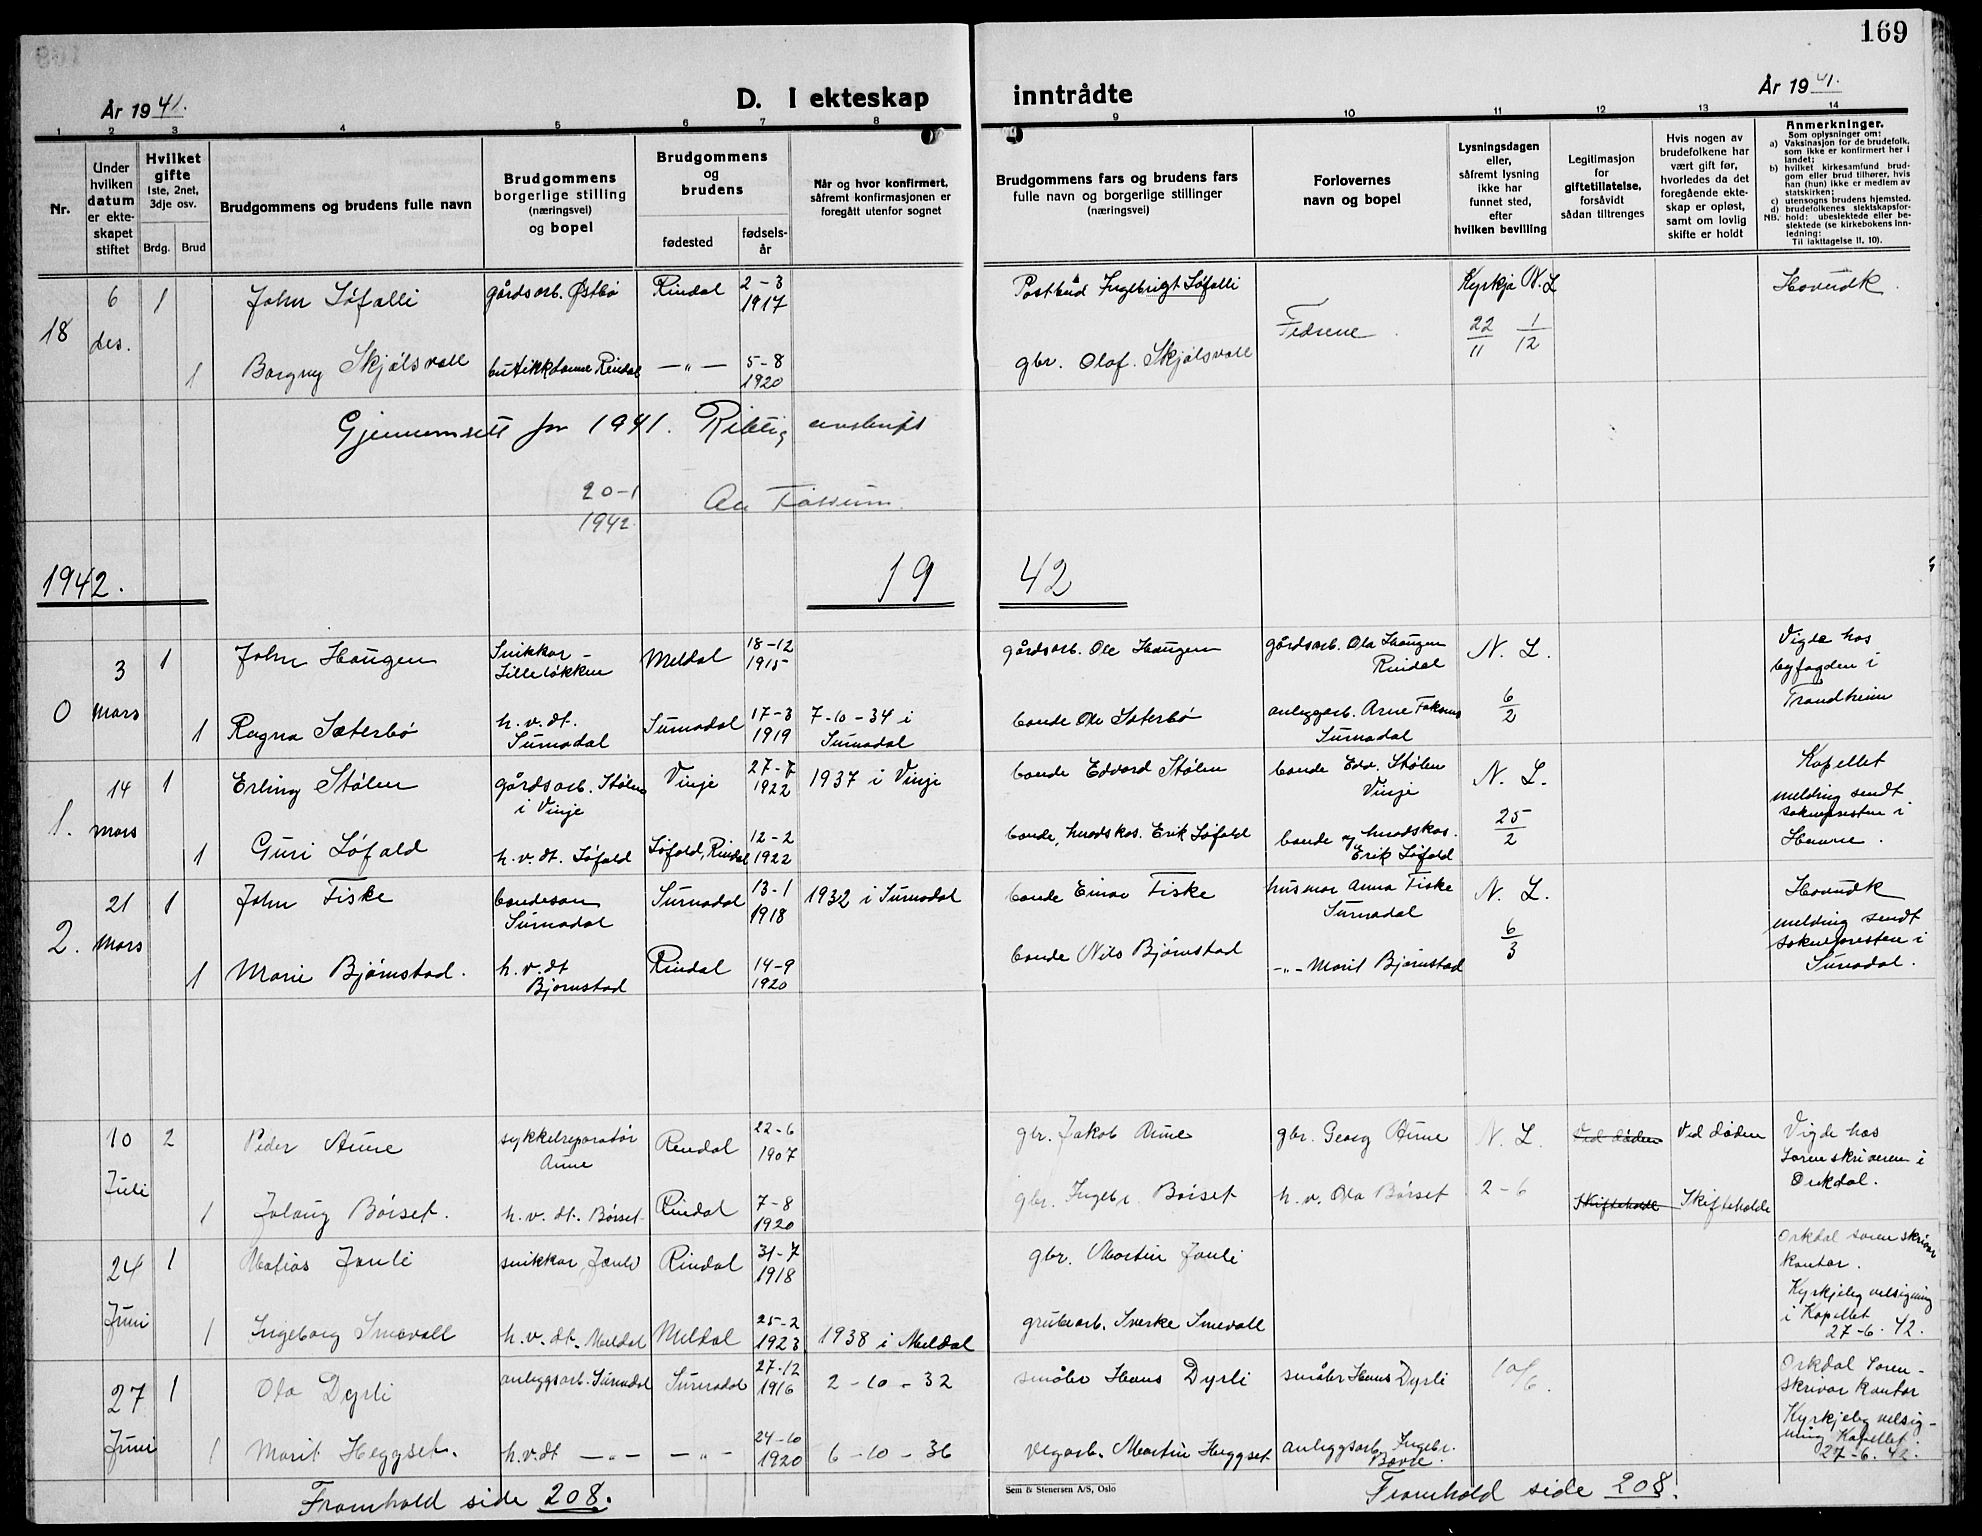 169
År 1941.
D. I ekteskap inntrådte
År 1941.
1 2 3 4 5 6 7 8 9 10 11 12 13 14
Nr.
Under hvilken datum er ekteskapet stiftet
Hvilket gifte
1ste, 2net, 3dje osv.
Brdg. Brud
Brudgommens og brudens fulle navn
Brudgommens borgerlige stilling (næringsvei) og bopel
Brudgommens og brudens
fødested
fødselsår
Når og hvor konfirmert, såfremt konfirmasjonen er foregått utenfor sognet
Brudgommens fars og brudens fars fulle navn og borgerlige stillinger (næringsvei)
Forlovernes navn og bopel
Lysningsdagen eller, såfremt lysning ikke har funnet sted, efter hvilken bevilling
Legitimasjon for giftetillatelse, forsåvidt sådan tiltrenges
Hvis nogen av brudefolkene har vært gift før, hvorledes da det foregående ekteskap er opløst, samt om lovlig skifte er holdt
Anmerkninger.
Som oplysninger om:
a) Vaksinasjon for de brudefolk, som ikke er konfirmert her i landet;
b) hvilket kirkesamfund brudgom eller brud tilhører, hvis han (hun) ikke er medlem av statskirken;
c) utensogns brudens hjemsted.
d) brudefolkenes slektskapsforhold: ubeslektede eller beslektede (se kirkebokens innledning:
NB. Til iakttagelse II, 10).
18 6 des. 1 John Løfalli gårdsarb. Østbø Rindal 2-3 1917 Postbud Ingebrigt Løfalli Fedrene Kyrkja N. L. 22/11 1/12 Hovudk.
1 Borgny Skjølsvoll butikkdame Rindal —"— 5-8 1920 gbr. Olaf. Skjølsvoll
Gjennemsett for 1941. Riktig avskrift
20-1 1942. Aa Fossum.
1942. 19 42
0 3 mars 1 John Haugen Snikkar - Lilleløkken Meldal 18-12 1915 gårdsarb. Ole Haugen gårdsarb. Ola Haugen Rindal N. L. 6/2 Vigde hos byfogden i Trondheim
1 Ragna Sæterbø h.v.dt. Surnadal Surnadal 17-3 1919 7-10-34 i Surnadal bonde Ole Sæterbø anleggarb. Arne Surnadal
1. 14 mars 1 Erling Stølen gårdsarb. Stølen i Vinje Vinje 27-7 1922 1937 i Vinje bonde Edvard Stølen bonde Edv. Stølen Vinje N. L. 25/2 Kapellet melding sendt soknepresten i Hemne.
1 Guri Løfald h.v.dt. Løfald Løfald, Rindal 12-2 1922 bonde, Erik Løfald bonde Erik Løfald
2. 21 mars 1 John Fiske bondeson Surnadal Surnadal 13-1 1918 1932 i Surnadal bonde Einar Fiske husmor Anna Fiske Surnadal N. L. 6/3 Hovudk melding sendt soknepresten i Surnadal.
1 Marie Bjørnstad. h.v.dt Bjørnstad Rindal 14-9 1920 bonde Nils Bjørnstad -"- Marit Bjørnstad
10 Juli 2 Peder Aune sykkelreparatør Aune Rindal 22-6 1907 gbr. Jakob Aune gbr. Georg Aune N. L. 2-6 Ved døden Ved døden Vigde hos sorenskriveren i Orkdal.
1 Jolaug Børset. h.v.dt. Børset Rindal 7-8 1920 gbr. Ingebr. Børset h.v. Ola Børset Skifteholde Skifteholde
24 Juni 1 Matias Jonli snikkar, Jonli Rindal 31-7 1918 gbr. Martin Jonli Orkdal sorenskrivar kontor. Kyrkjeleg velsigning i Kapellet 27-6-42.
1 Ingeborg Smevoll h.v.dt. Meldal Meldal 25-2 1923 1938 i Meldal grubearb. Sverke Smevoll
27 Juni 1 Ola Dyrli anleggsarb. Surnadal Surnadal 27-12 1916 2-10-32 småbr Hans Dyrli småbr Hans Dyrli 10/6. Orkdal Sorenskrivar kontor Kyrkjeleg velsigning Kapellet 27-6.42.
1 Marit Heggset. h.v.dt —"— —"— 24-10 1920 6-10-36 vegarb. Martin Heggset anleggsarb. Ingebr.
Framhald side 208.
Sem & Stenersen A/S, Oslo
Framhald side 208.